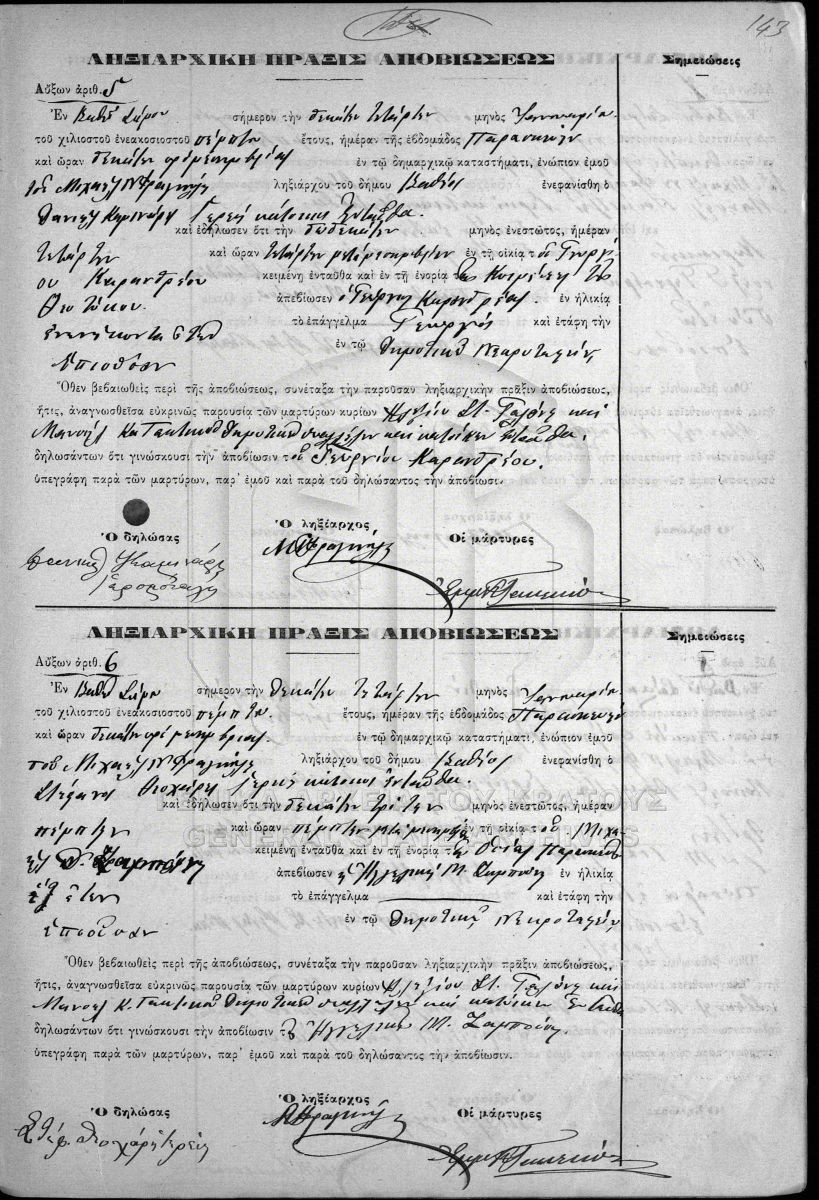 143
ΛΗΞΙΑΡΧΙΚΗ ΠΡΑΞΙΣ ΑΠΟΒΙΩΣΕΩΣ
Σημειώσεις
Αὔξων ἀριθ. 5
Ἐν Βαθεῖ Σάμου σήμερον τὴν δεκάτην τετάρτην μηνὸς Ἰανουαρίου
τοῦ χιλιοστοῦ ἐνεακοσιοστοῦ πέμπτου ἔτους, ἡμέραν τῆς ἑβδομάδος Παρασκευὴν
καὶ ὥραν δεκάτην πρὸ μεσημβρίας ἐν τῷ δημαρχικῷ καταστήματι, ἐνώπιον ἐμοῦ
τοῦ Μιχαὴλ Ν. ληξιάρχου τοῦ δήμου Βαθέος ἐνεφανίσθη ὁ
Δανιὴλ ἱερεὺς κάτοικος ἐνταῦθα.
καὶ ἐδήλωσεν ὅτι τὴν δωδεκάτην μηνὸς ἐνεστῶτος, ἡμέραν
τετάρτην καὶ ὥραν τετάρτην μετὰ μεσημβρίαν ἐν τῇ οἰκίᾳ τοῦ Γεωργί-
ου Καρανδρέου κειμένῃ ἐνταῦθα καὶ ἐν τῇ ἐνορίᾳ τῆς Κοιμήσεως τῆς
Θεοτόκου ἀπεβίωσεν ὁ Γεώργιος Καρανδρέας. ἐν ἡλικίᾳ
ἐνενήκοντα ἐτῶν τὸ ἐπάγγελμα Γεωργὸς καὶ ἐτάφη τὴν
ἐπιοῦσαν ἐν τῷ Δημοτικῷ Νεκροταφείῳ,
Ὅθεν βεβαιωθεὶς περὶ τῆς ἀποβιώσεως, συνέταξα τὴν παροῦσαν ληξιαρχικὴν πρᾶξιν ἀποβιώσεως,
ἥτις, ἀναγνωσθεῖσα εὐκρινῶς παρουσίᾳ τῶν μαρτύρων κυρίων Στ. καὶ
Μανουὴλ Κ. δημοτικῶν ὑπαλλήλων καὶ κατοίκων ἐνταῦθα.
δηλωσάντων ὅτι γινώσκουσι τὴν ἀποβίωσιν τοῦ Γεωργίου Καρανδρέου.
ὑπεγράφη παρὰ τῶν μαρτύρων, παρ' ἐμοῦ καὶ παρὰ τοῦ δηλώσαντος τὴν ἀποβίωσιν.
Ὁ δηλώσας
Ὁ ληξίαρχος
Οἱ μάρτυρες
ΛΗΞΙΑΡΧΙΚΗ ΠΡΑΞΙΣ ΑΠΟΒΙΩΣΕΩΣ
Σημειώσεις
Αὔξων ἀριθ. 6
Ἐν Βαθεῖ Σάμου σήμερον τὴν δεκάτην τετάρτην μηνὸς Ἰανουαρίου
τοῦ χιλιοστοῦ ἐνεακοσιοστοῦ πέμπτου ἔτους, ἡμέραν τῆς ἑβδομάδος Παρασκευὴν
καὶ ὥραν δεκάτην πρὸ μεσημβρίας ἐν τῷ δημαρχικῷ καταστήματι, ἐνώπιον ἐμοῦ
τοῦ Μιχαὴλ Ν. ληξιάρχου τοῦ δήμου Βαθέος ἐνεφανίσθη ὁ
Στέφανος ἱερεὺς κάτοικος ἐνταῦθα.
καὶ ἐδήλωσεν ὅτι τὴν δεκάτην τρίτην μηνὸς ἐνεστῶτος, ἡμέραν
πέμπτην καὶ ὥραν πέμπτην μετὰ μεσημβρίαν ἐν τῇ οἰκίᾳ τοῦ Μιχα-
ὴλ κειμένῃ ἐνταῦθα καὶ ἐν τῇ ἐνορίᾳ τῆς Ὁσίας Παρασκευῆς
ἀπεβίωσεν ἡ Ἀγγελικὴ Μ. ἐν ἡλικίᾳ
ἓξ ἐτῶν τὸ ἐπάγγελμα καὶ ἐτάφη τὴν
ἐπιοῦσαν ἐν τῷ Δημοτικῷ Νεκροταφείῳ,
Ὅθεν βεβαιωθεὶς περὶ τῆς ἀποβιώσεως, συνέταξα τὴν παροῦσαν ληξιαρχικὴν πρᾶξιν ἀποβιώσεως,
ἥτις, ἀναγνωσθεῖσα εὐκρινῶς παρουσίᾳ τῶν μαρτύρων κυρίων Στ. καὶ
Μανουὴλ Κ. δημοτικῶν ὑπαλλήλων καὶ κατοίκων ἐνταῦθα
δηλωσάντων ὅτι γινώσκουσι τὴν ἀποβίωσιν τῆς Ἀγγελικῆς Μ.
ὑπεγράφη παρὰ τῶν μαρτύρων, παρ' ἐμοῦ καὶ παρὰ τοῦ δηλώσαντος τὴν ἀποβίωσιν.
Ὁ δηλώσας
Ὁ ληξίαρχος
Οἱ μάρτυρες